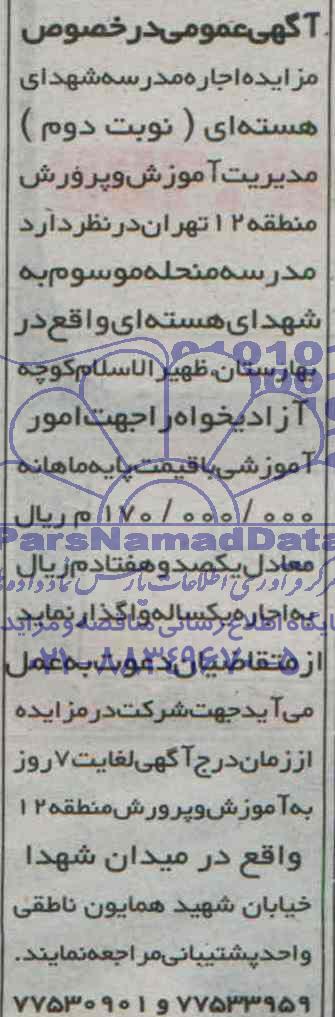 آگهی عمومی در خصوص
مزایده اجاره مدرسه شهدای
هسته‌ای ( نوبت دوم )
مدیریت آموزش و پرورش
منطقه ۱۲ تهران در نظر دارد
مدرسه منحله موسوم به
شهدای هسته‌ای واقع در
بهارستان، ظهیر الاسلام کوچه
آزادیخواه را جهت امور
آموزشی با قیمت پایه ماهانه
۱۷۰/۰۰۰/۰۰۰ م ریال
ParsNamadData
معادل یکصد و هفتاد م ریال
به اجاره یکساله واگذار نماید
از متقاضیان دعوت به عمل
۰۲۱-۸۸۳۴۹۶۷۰-۵
می‌آید جهت شرکت در مزایده
از زمان درج آگهی لغایت ۷ روز
به آموزش و پرورش منطقه ۱۲
واقع در میدان شهدا
خیابان شهید همایون ناطقی
واحد پشتیبانی مراجعه نمایند.
۷۷۵۳۳۹۵۹ و ۷۷۵۳۰۹۰۱